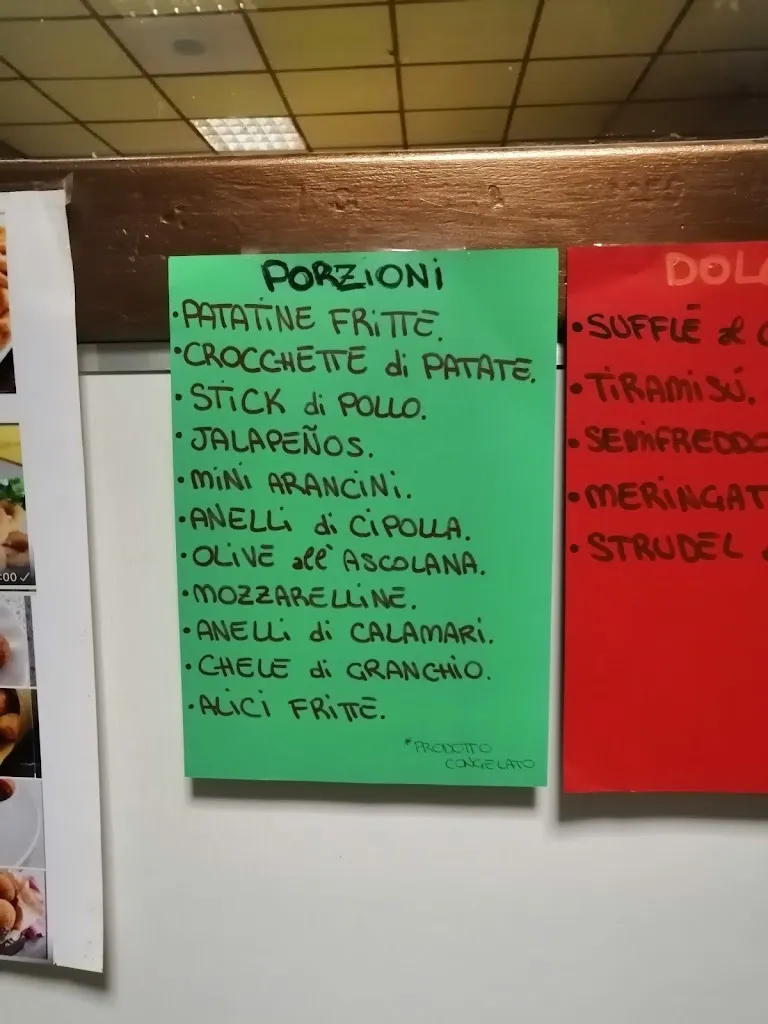 PORZIONI
•PATATINE FRITTE.
•CROCCHETTE di PATATE.
•STICK di POLLO.
•JALAPEÑOS.
•MINI ARANCINI.
•ANELLI di CIPOLLA.
•OLIVE all' ASCOLANA.
•MOZZARELLINE.
•ANELLI di CALAMARI.
•CHELE di GRANCHIO.
•ALICI FRITTE.
*PRODOTTO
CONGELATO
DOL
•SUFFLÉ al
•TIRAMISÚ.
•SEMIFREDDO
•MERINGAT
•STRUDEL
:00